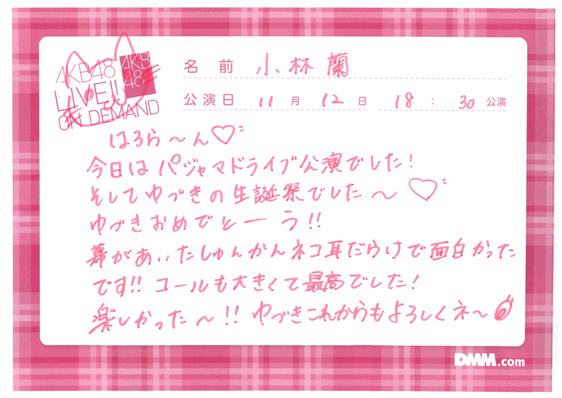 AKB48
LIVE!!
ON DEMAND
AKB
48
名前 小林 蘭
公演日 11月 12日 18:30 公演
はろら〜ん♡
今日はパジャマドライブ公演でした!
そしてゆづきの生誕祭でした〜♡
ゆづきおめでとーう!!
幕があいたしゅんかんネコ耳だらけで面白かった
です!! コールも大きくて最高でした!
楽しかった〜!! ゆづきこれからもよろしくネ〜
DMM.com